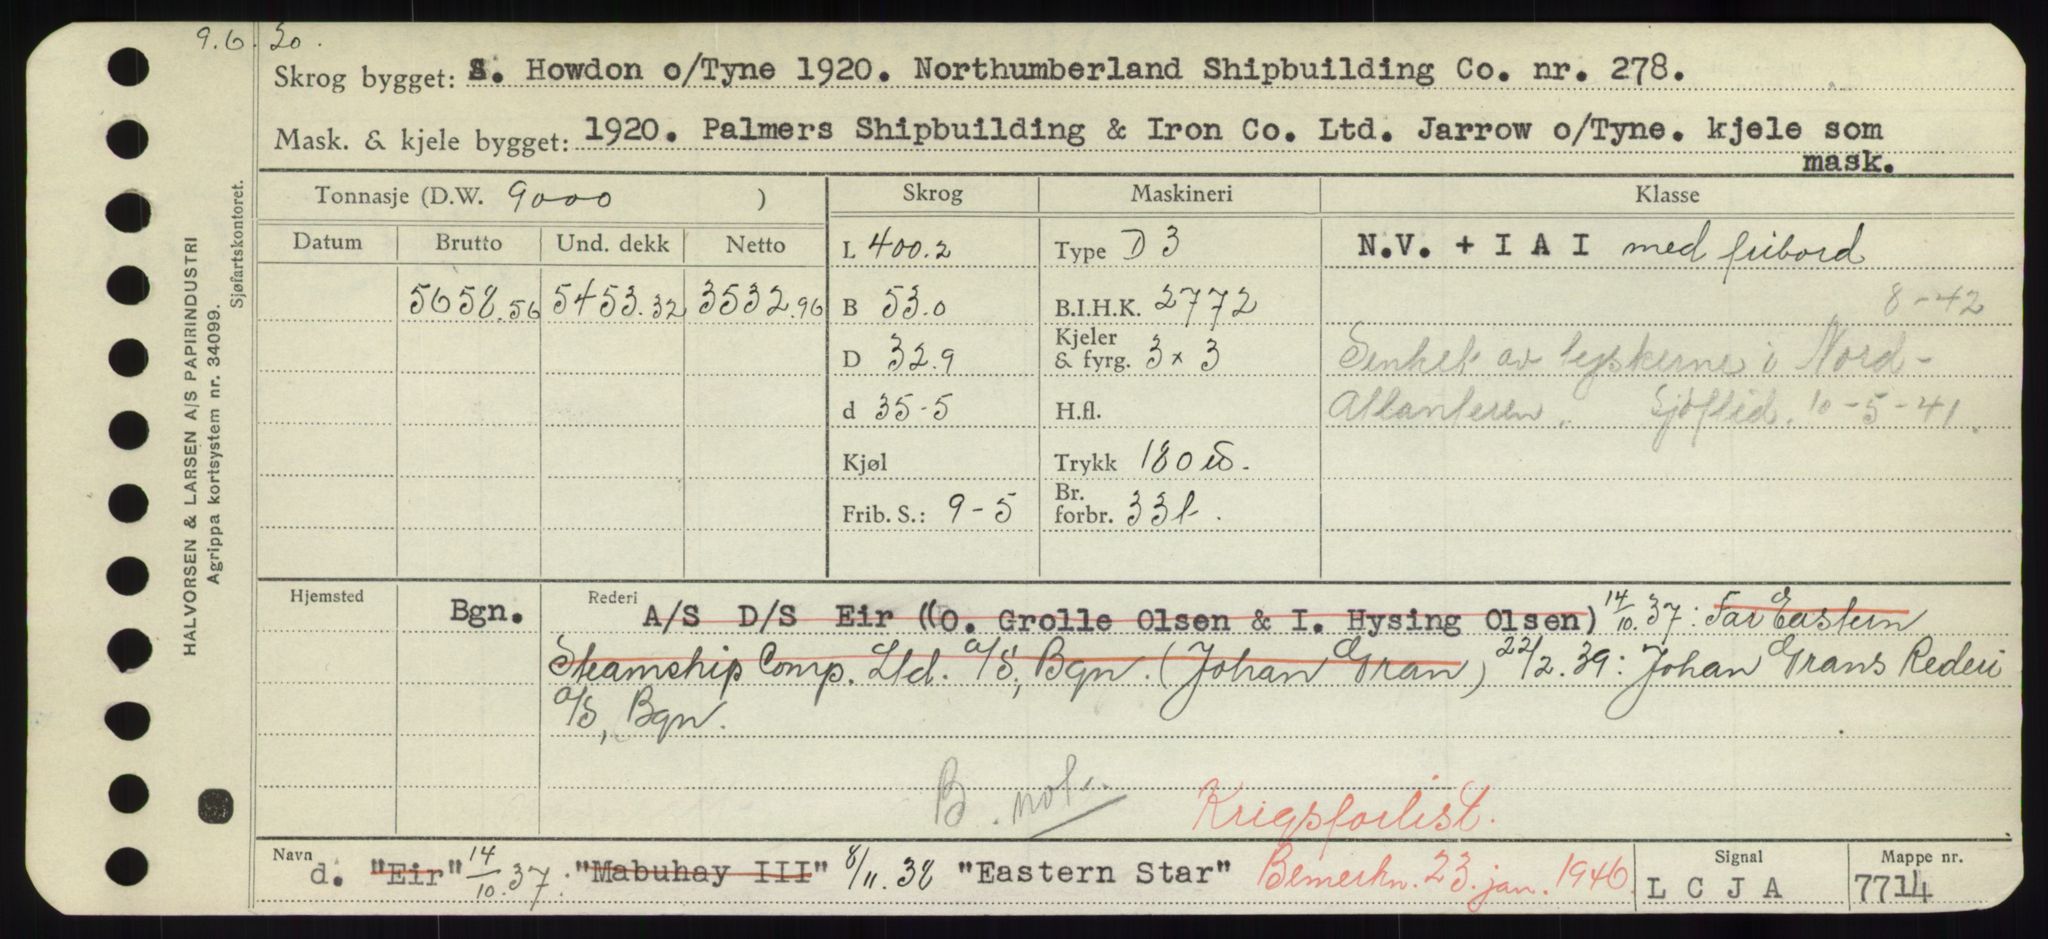 9.6.20.
Skrog bygget: S. Howdon o/Tyne 1920. Northumberland Shipbuilding Co. nr. 278.
Mask. & kjele bygget: 1920. Palmers Shipbuilding & Iron Co. Ltd. Jarrow o/Tyne. kjele som
mask.
Tonnasje (D.W. 9000 ) Skrog Maskineri Klasse
Datum Brutto Und. dekk Netto L 400.2 Type D 3 N.V. + I A I med fribord
5658.56 5453.32 3532.96 B 53.0 B.I.H.K. 2772 8-42
D 32.9 Kjeler & fyrg. 3 x 3 Senket av tyskerne i Nord-
d 35-5 H.fl. Atlanteren. Sjöftid. 10-5-41.
Kjøl Trykk 180 lb.
Frib. S.: 9-5 Br. forbr. 33 t.
Hjemsted Bgn. Rederi A/S D/S Eir (O. Grolle Olsen & I. Hysing Olsen) 14/10.37: Far Eastern
Steamship Comp. Ltd. A/S, Bgn. (Johan Gran) 22/2.39: Johan Grans Rederi
A/S, Bgn.
B. not.
Krigsforlist.
Navn d. "Eir" 14/10.37: "Mabuhay III" 8/11.38 "Eastern Star" Bemerkn. 23. jan. 1946 Signal L C J A Mappe nr. 7714
HALVORSEN & LARSEN A/S PAPIRINDUSTRI
Agrippa kortsystem nr. 34099.
Sjøfartskontoret.